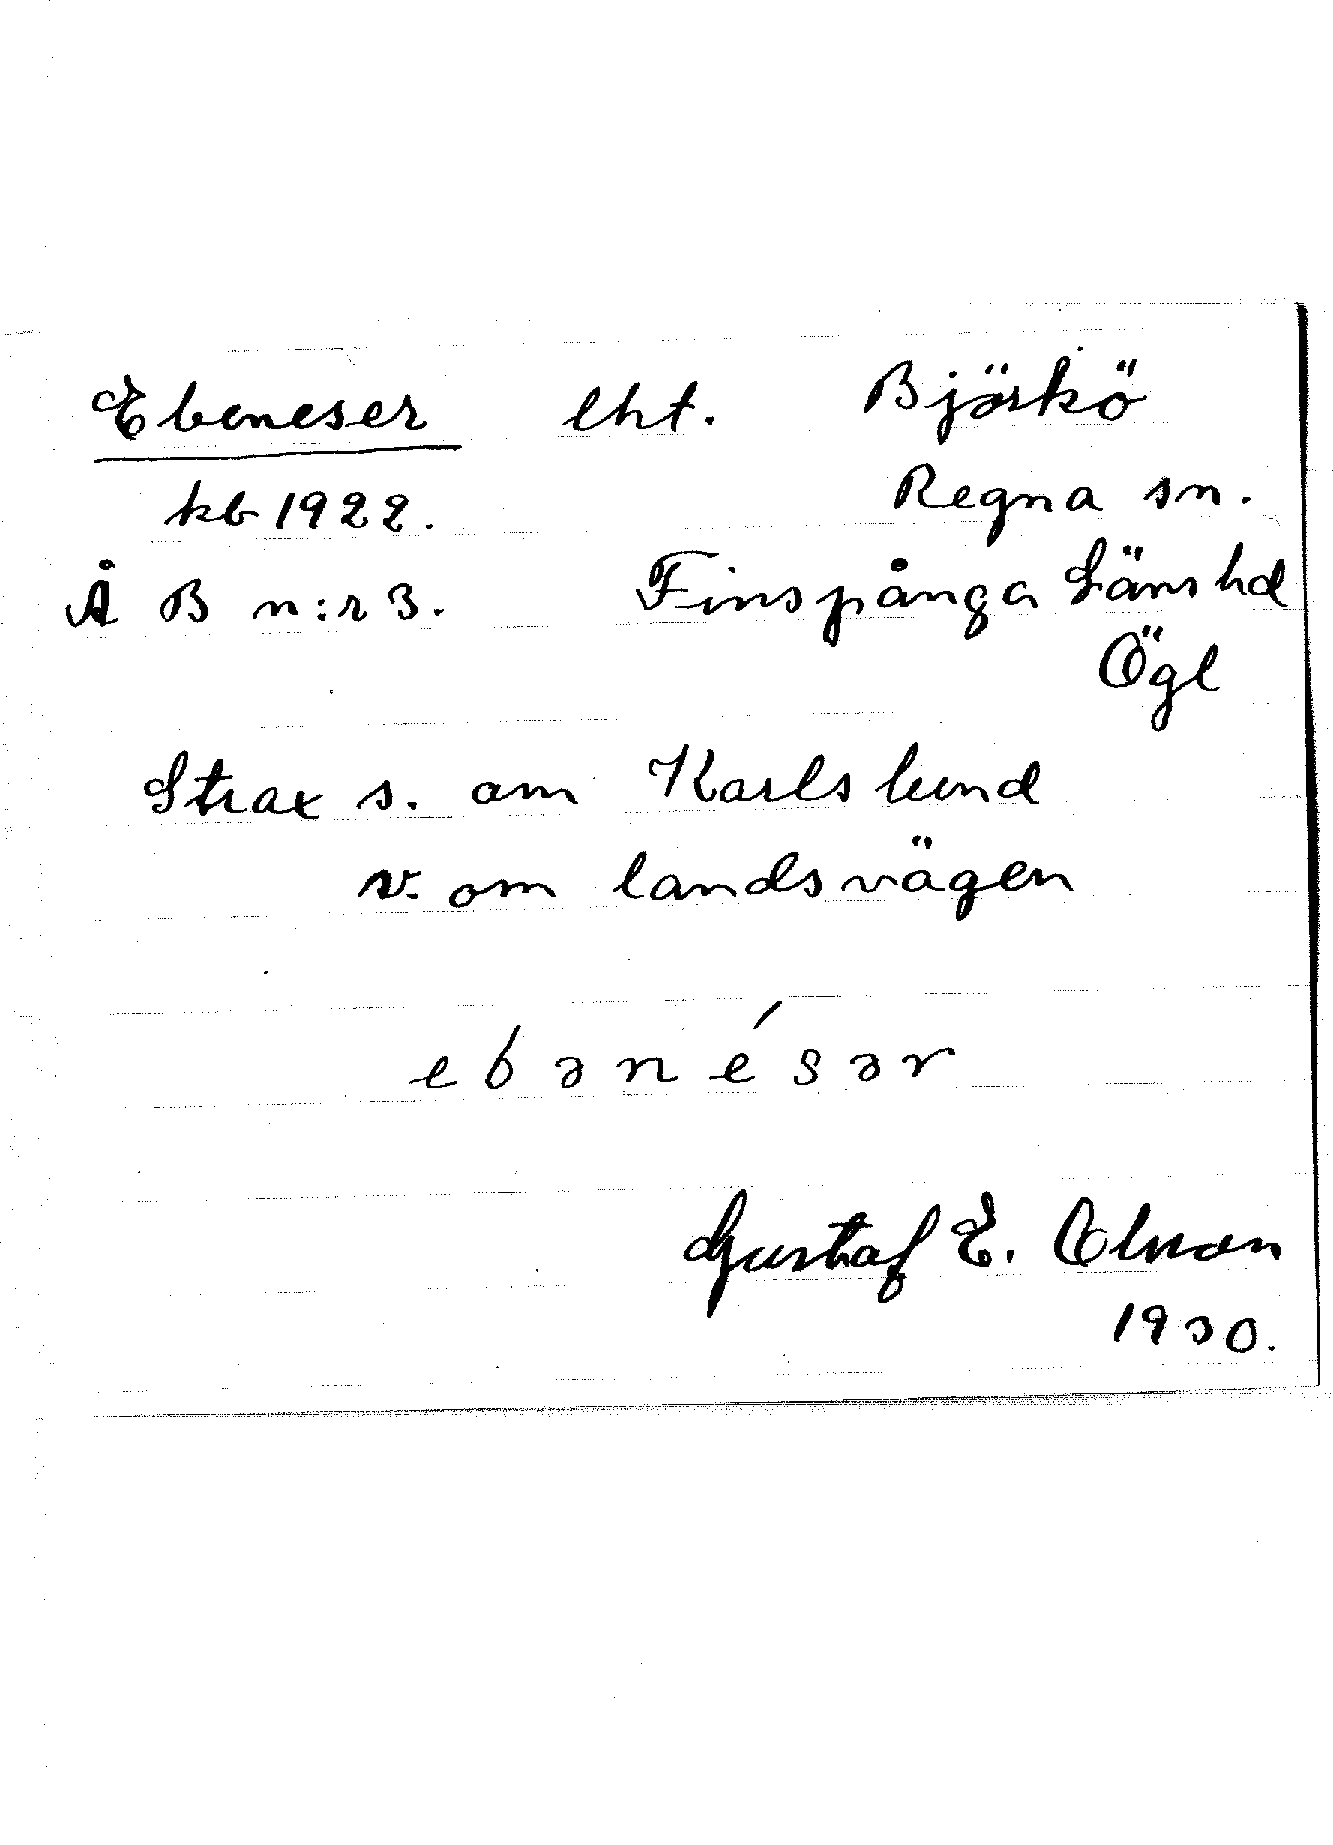 Ebeneser lht. Björkö
kb 1922. Regna sn.
Å B n:r 3. Finspånga Läns hd
Ögl
Strax s. om Karlslund
v. om landsvägen
ebənésər
Gustaf E. Olsson
1930.